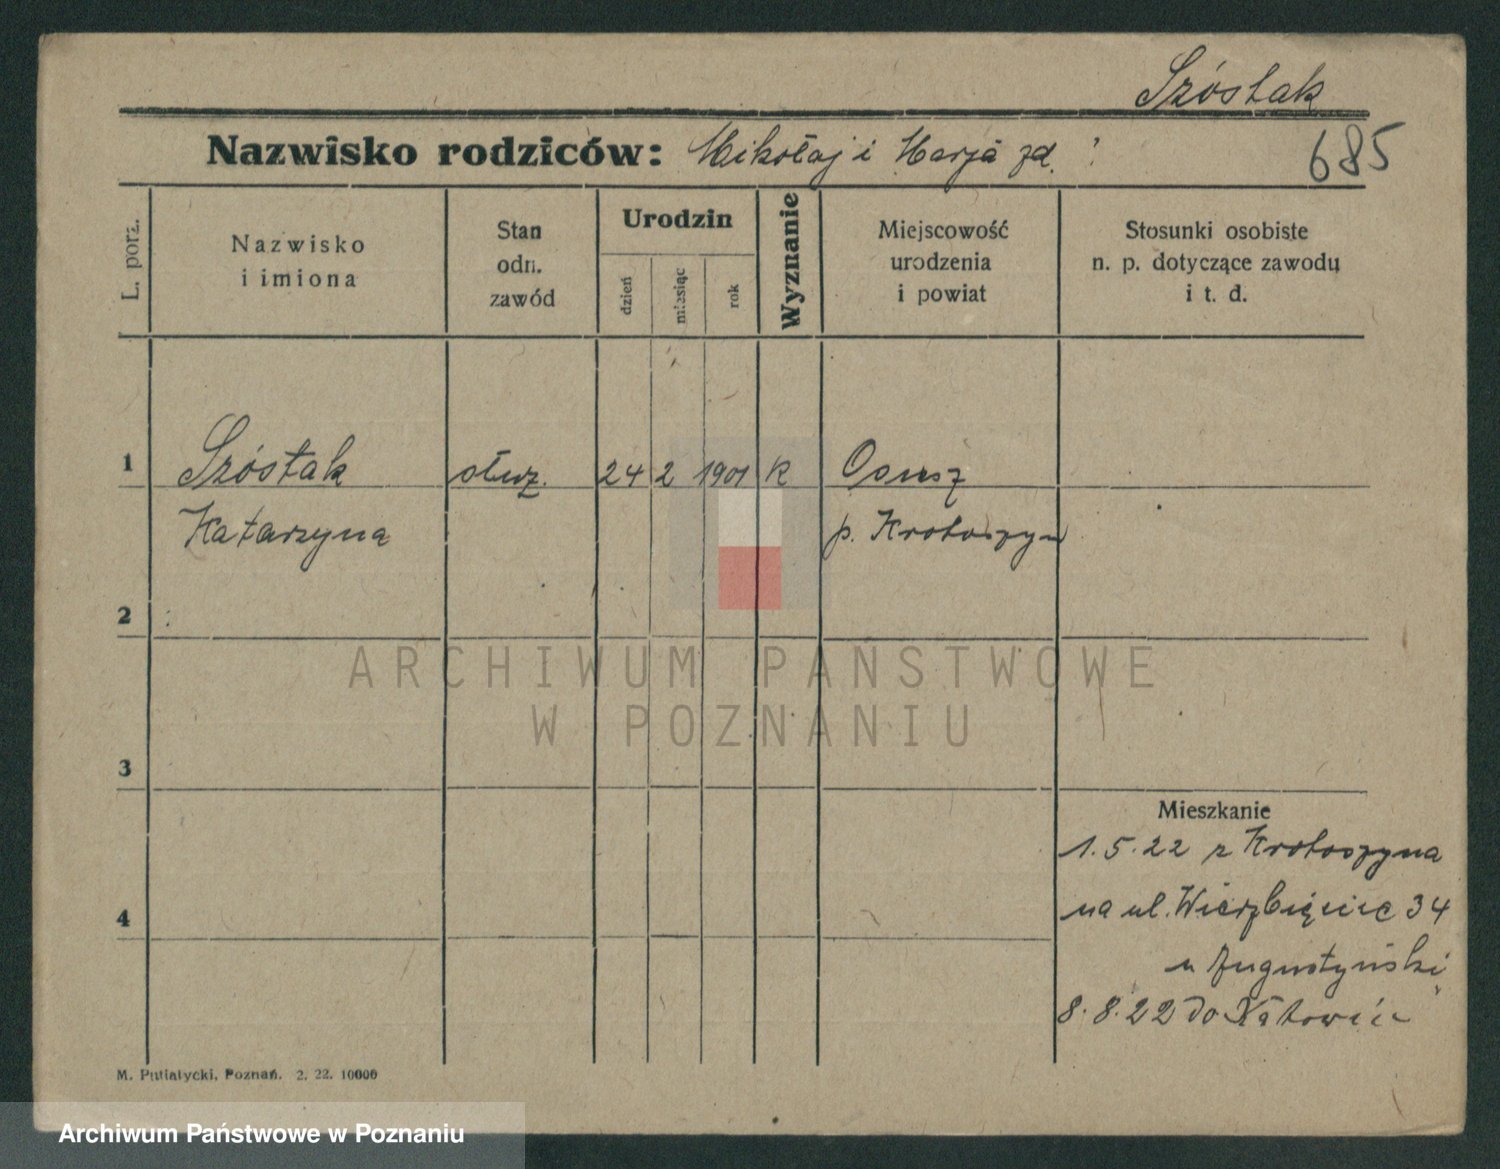 Szóstak
Nazwisko rodziców: Mikołaj i Marja zd. ?
685
L. porz.
Nazwisko
i imiona
Stan
odn.
zawód
Urodzin
dzień
miesiąc
rok
Wyznanie
Miejscowość
urodzenia
i powiat
Stosunki osobiste
n. p. dotyczące zawodu
i t. d.
1
Szóstak służ. 24 2 1901 K Osusz
Katarzyna p. Krotoszyn
2
ARCHIWUM PAŃSTWOWE
W POZNANIU
3
Mieszkanie
1.5.22 z Krotoszyna
4
na ul. Wierzbięcic 34
u Augustyński
8.8.22 do Katowic
M. Putiatycki, Poznań. 2. 22. 10000
Archiwum Państwowe w Poznaniu